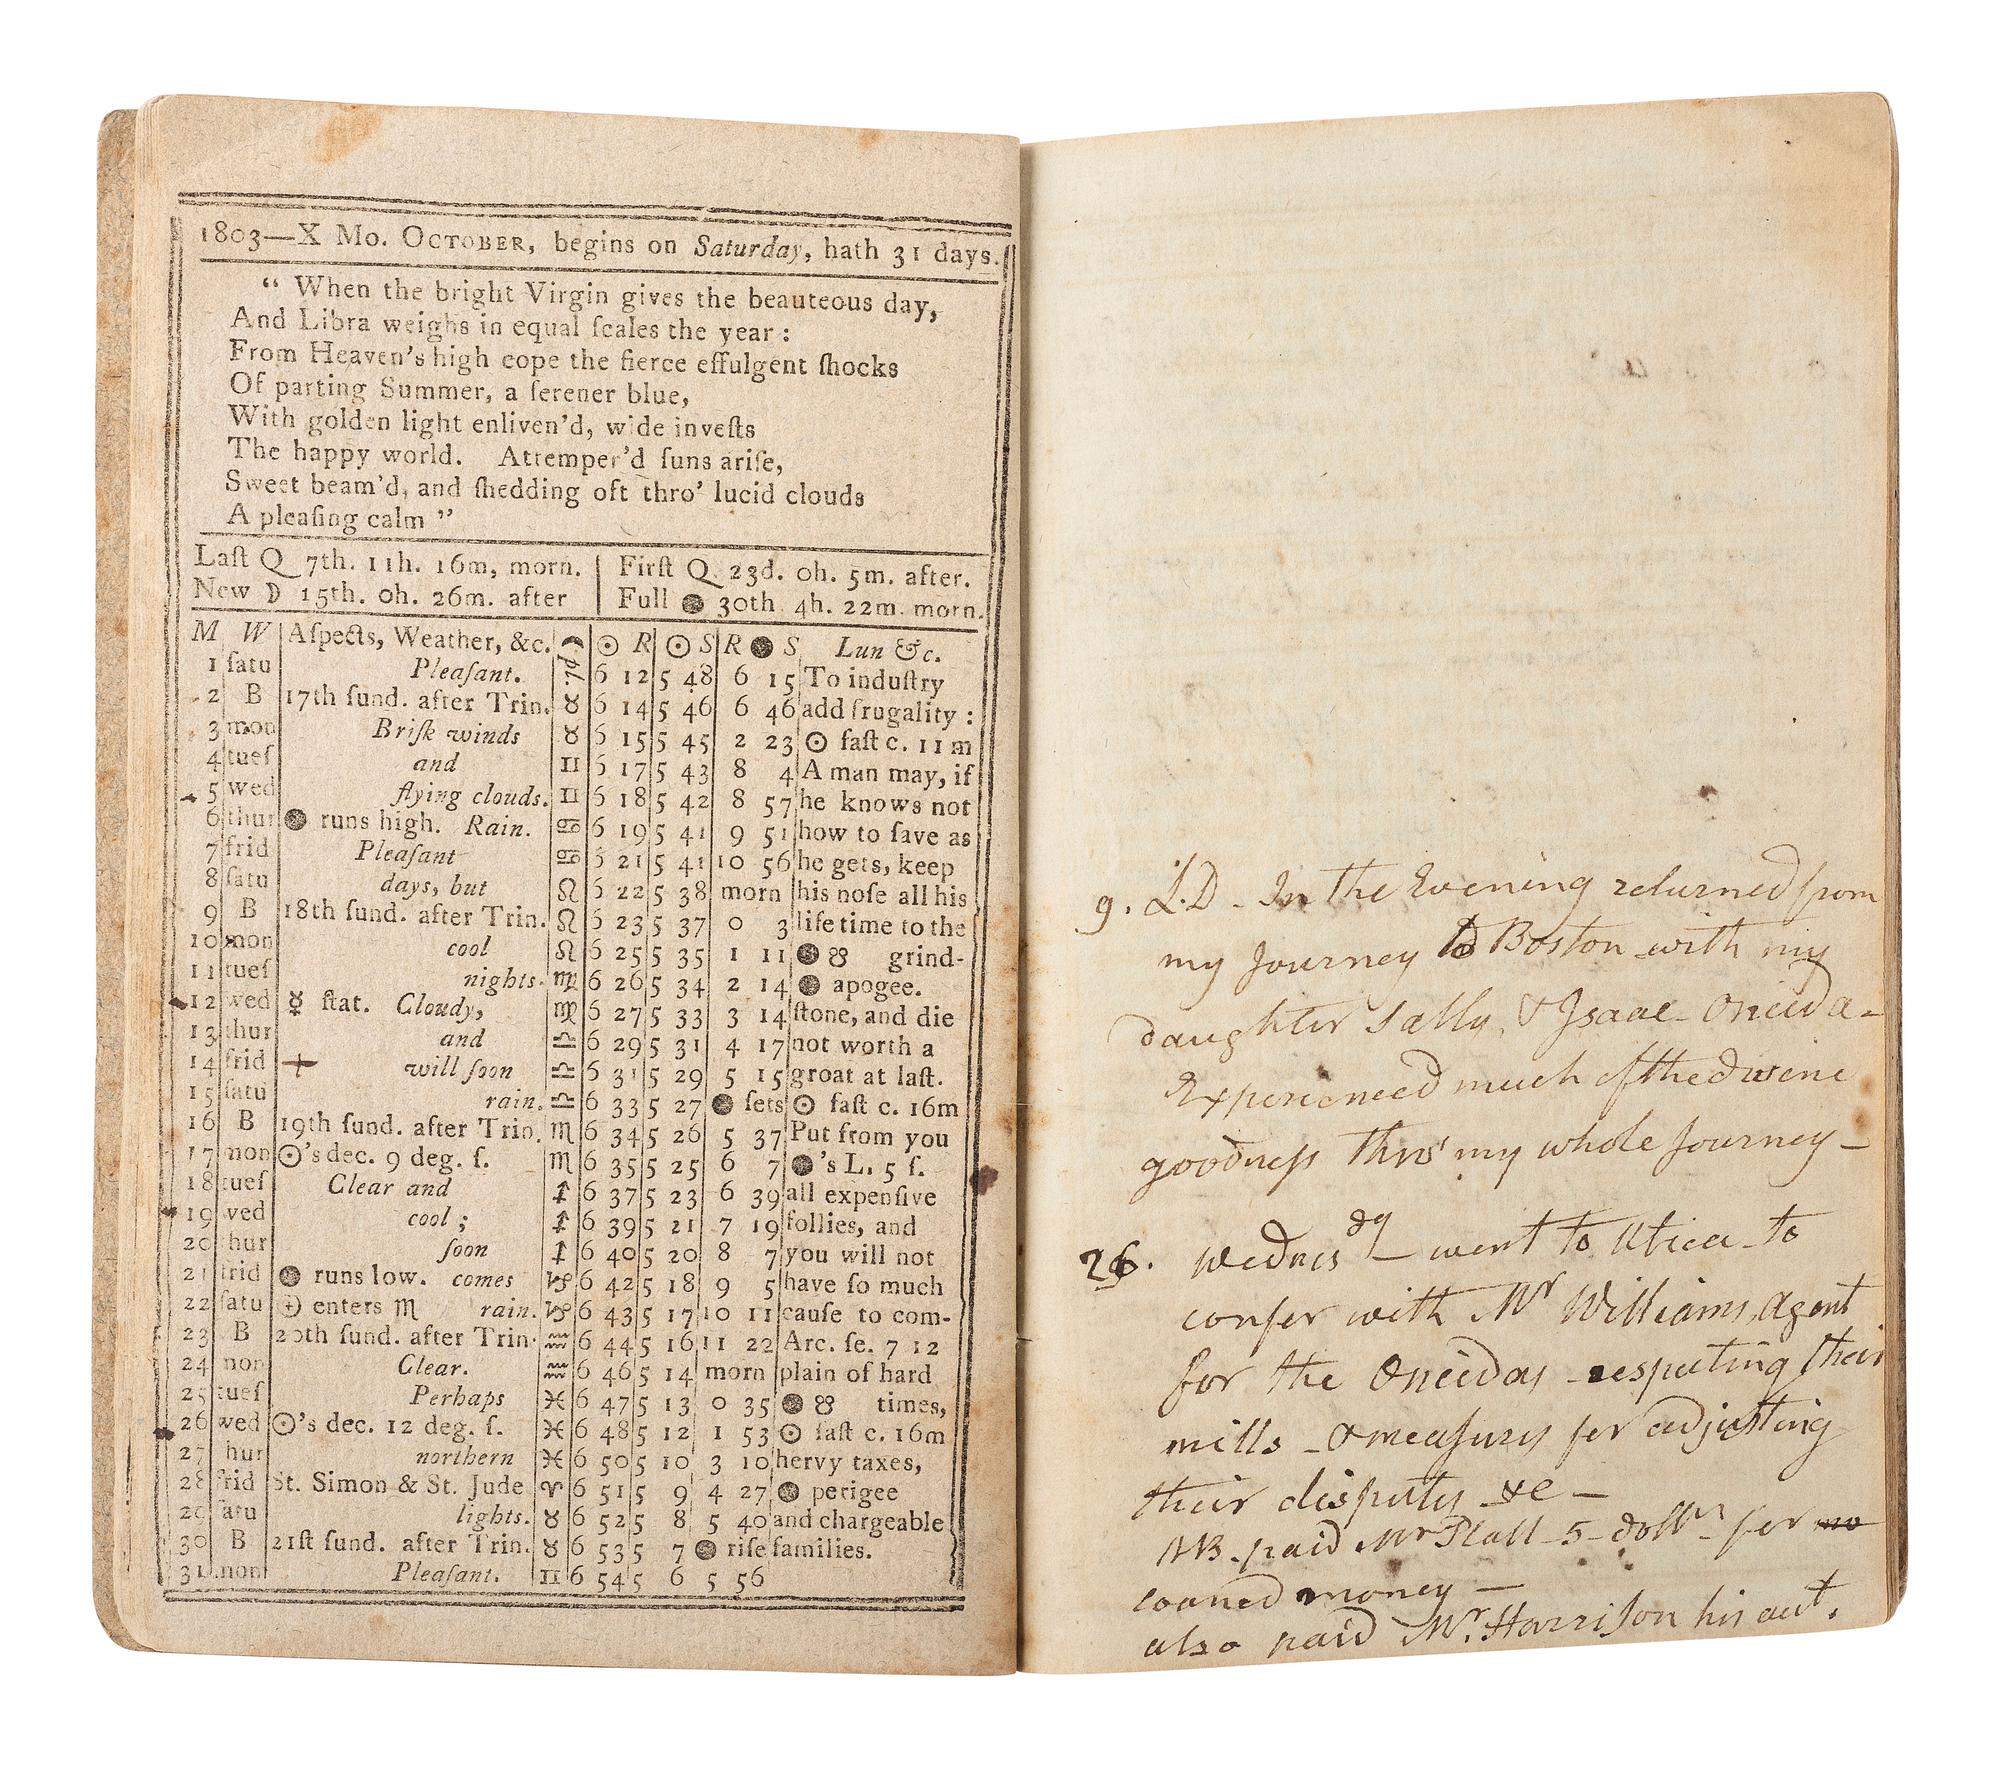 1803—X Mo. OCTOBER, begins on Saturday, hath 31 days.
“ When the bright Virgin gives the beauteous day,
And Libra weighs in equal ſcales the year :
From Heaven's high cope the fierce effulgent ſhocks
Of parting Summer, a ſerener blue,
With golden light enliven'd, wide inveſts
The happy world. Attemper'd ſuns ariſe,
Sweet beam'd, and ſhedding oft thro' lucid clouds
A pleaſing calm ”
Laſt Q 7th. 11h. 16m, morn. | Firſt Q. 23d. 0h. 5m. after.
New ☽ 15th. 0h. 26m. after | Full ● 30th 4h. 22m. morn.
M W Aſpects, Weather, &c. ☽ pl. ☉ R ☉ S R ● S Lun &c.
1 ſatu Pleaſant. 6 12 5 48 6 15 To induſtry
2 B 17th ſund. after Trin. ♉ 6 14 5 46 6 46 add frugality :
3 mon Briſk winds ♉ 6 15 5 45 2 23 ☉ faſt c. 11m
4 tueſ and ♊ 6 17 5 43 8 4 A man may, if
5 wed flying clouds. ♊ 6 18 5 42 8 57 he knows not
6 thur ● runs high. Rain. ♋ 6 19 5 41 9 51 how to ſave as
7 frid Pleaſant ♋ 6 21 5 41 10 56 he gets, keep
8 ſatu days, but ♌ 6 22 5 38 morn his noſe all his
9 B 18th ſund. after Trin. ♌ 6 23 5 37 0 3 life time to the
10 mon cool ♌ 6 25 5 35 1 11 ● ☋ grind-
11 tueſ nights. ♍ 6 26 5 34 2 14 ● apogee.
12 wed ☿ ſtat. Cloudy, ♍ 6 27 5 33 3 14 ſtone, and die
13 thur and ♎ 6 29 5 31 4 17 not worth a
14 frid will ſoon ♎ 6 31 5 29 5 15 groat at laſt.
15 ſatu rain. ♎ 6 33 5 27 ● ſets ☉ faſt c. 16m
16 B 19th ſund. after Trin. ♏ 6 34 5 26 5 37 Put from you
17 mon ☉'s dec. 9 deg. ſ. ♏ 6 35 5 25 6 7 ●'s L. 5 ſ.
18 tueſ Clear and ♐ 6 37 5 23 6 39 all expenſive
19 wed cool ; ♐ 6 39 5 21 7 19 follies, and
20 thur ſoon ♐ 6 40 5 20 8 7 you will not
21 frid ● runs low. comes ♑ 6 42 5 18 9 5 have ſo much
22 ſatu ☉ enters ♏ rain. ♑ 6 43 5 17 10 11 cauſe to com-
23 B 20th ſund. after Trin. ♒ 6 44 5 16 11 22 Arc. ſe. 7 12
24 mon Clear. ♒ 6 46 5 14 morn plain of hard
25 tueſ Perhaps ♓ 6 47 5 13 0 35 ● ☋ times,
26 wed ☉'s dec. 12 deg. ſ. ♓ 6 48 5 12 1 53 ☉ faſt c. 16m
27 thur northern ♓ 6 50 5 10 3 10 hervy taxes,
28 frid St. Simon & St. Jude ♈ 6 51 5 9 4 27 ● perigee
29 ſatu lights. ♉ 6 52 5 8 5 40 and chargeable
30 B 21ſt ſund. after Trin. ♉ 6 53 5 7 ● riſe families.
31 mon Pleaſant. ♊ 6 54 5 6 5 56
9. L.D - In the Evening returned from
my Journey to Boston with my
daughter Sally, & Isaac Oneida-
Experienced much of the divine
goodneſs thro' my whole Journey -
26. Wednesdy - went to Utica - to
confer with Mr Williams, Agent
for the Oneidas - respecting their
mills - & measures for adjusting
their disputes &c -
NB. paid Mr Platt - 5 - dollrs for no
loaned money -
also paid Mr. Harrison his act.